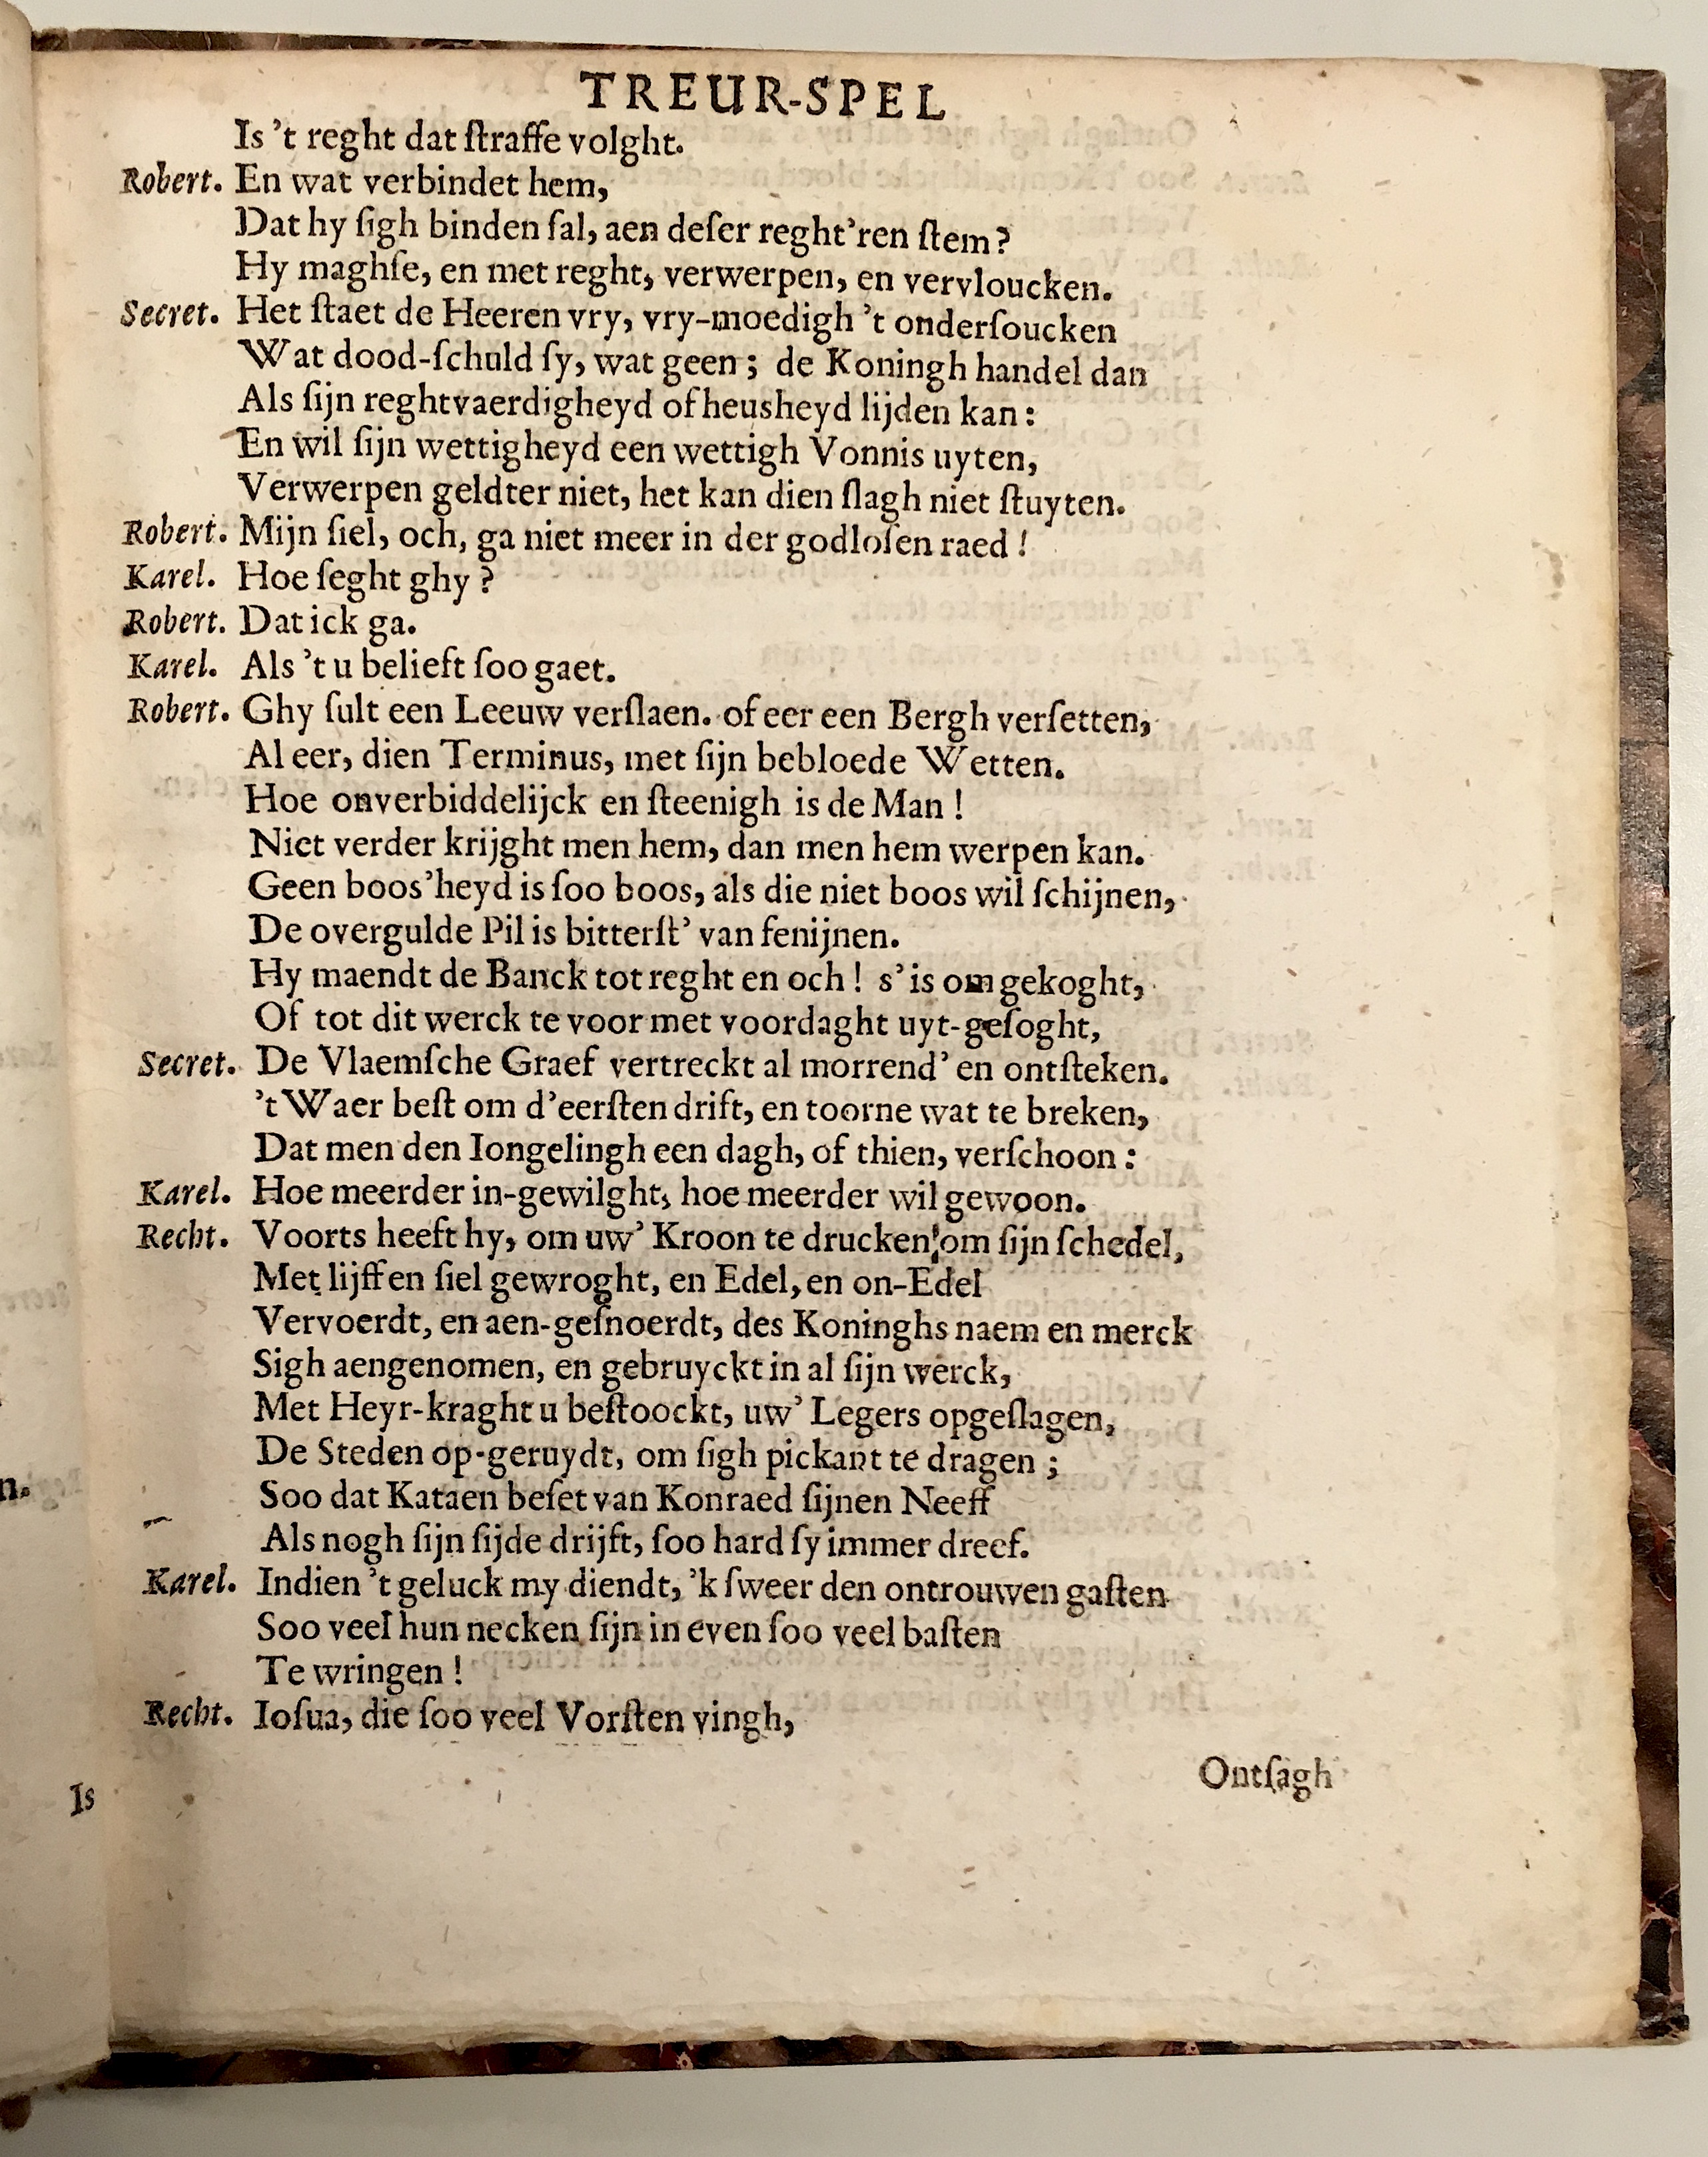 TREUR-SPEL
Is 't reght dat ſtraffe volght.
Robert. En wat verbindet hem,
Dat hy ſigh binden ſal, aen deſer reght'ren ſtem?
Hy maghſe, en met reght, verwerpen, en vervloucken.
Secret. Het ſtaet de Heeren vry, vry-moedigh 't onderſoucken
Wat dood-ſchuld ſy, wat geen; de Koningh handel dan
Als ſijn reghtvaerdigheyd of heusheyd lijden kan:
En wil ſijn wettigheyd een wettigh Vonnis uyten,
Verwerpen geldter niet, het kan dien ſlagh niet ſtuyten.
Robert. Mijn ſiel, och, ga niet meer in der godloſen raed!
Karel. Hoe ſeght ghy?
Robert. Dat ick ga.
Karel. Als 't u belieft ſoo gaet.
Robert. Ghy ſult een Leeuw verſlaen. of eer een Bergh verſetten,
Al eer, dien Terminus, met ſijn bebloede Wetten.
Hoe onverbiddelijck en ſteenigh is de Man!
Niet verder krijght men hem, dan men hem werpen kan.
Geen boos'heyd is ſoo boos, als die niet boos wil ſchijnen,
De overgulde Pil is bitterſt' van fenijnen.
Hy maendt de Banck tot reght en och! s' is om gekoght,
Of tot dit werck te voor met voordaght uyt-geſoght,
Secret. De Vlaemſche Graef vertreckt al morrend' en ontſteken.
't Waer beſt om d'eerſten drift, en toorne wat te breken,
Dat men den Iongelingh een dagh, of thien, verſchoon:
Karel. Hoe meerder in-gewilght, hoe meerder wil gewoon.
Recht. Voorts heeft hy, om uw' Kroon te drucken om ſijn ſchedel,
Met lijff en ſiel gewroght, en Edel, en on-Edel
Vervoerdt, en aen-geſnoerdt, des Koninghs naem en merck
Sigh aengenomen, en gebruyckt in al ſijn werck,
Met Heyr-kraght u beſtoockt, uw' Legers opgeſlagen,
De Steden op-geruydt, om ſigh pickant te dragen;
Soo dat Kataen beſet van Konraed ſijnen Neeff
Als nogh ſijn ſijde drijft, ſoo hard ſy immer dreef.
Karel. Indien 't geluck my diendt, 'k ſweer den ontrouwen gaſten
Soo veel hun necken ſijn in even ſoo veel baſten
Te wringen!
Recht. Ioſua, die ſoo veel Vorſten vingh,
Ontſagh
n.
Is